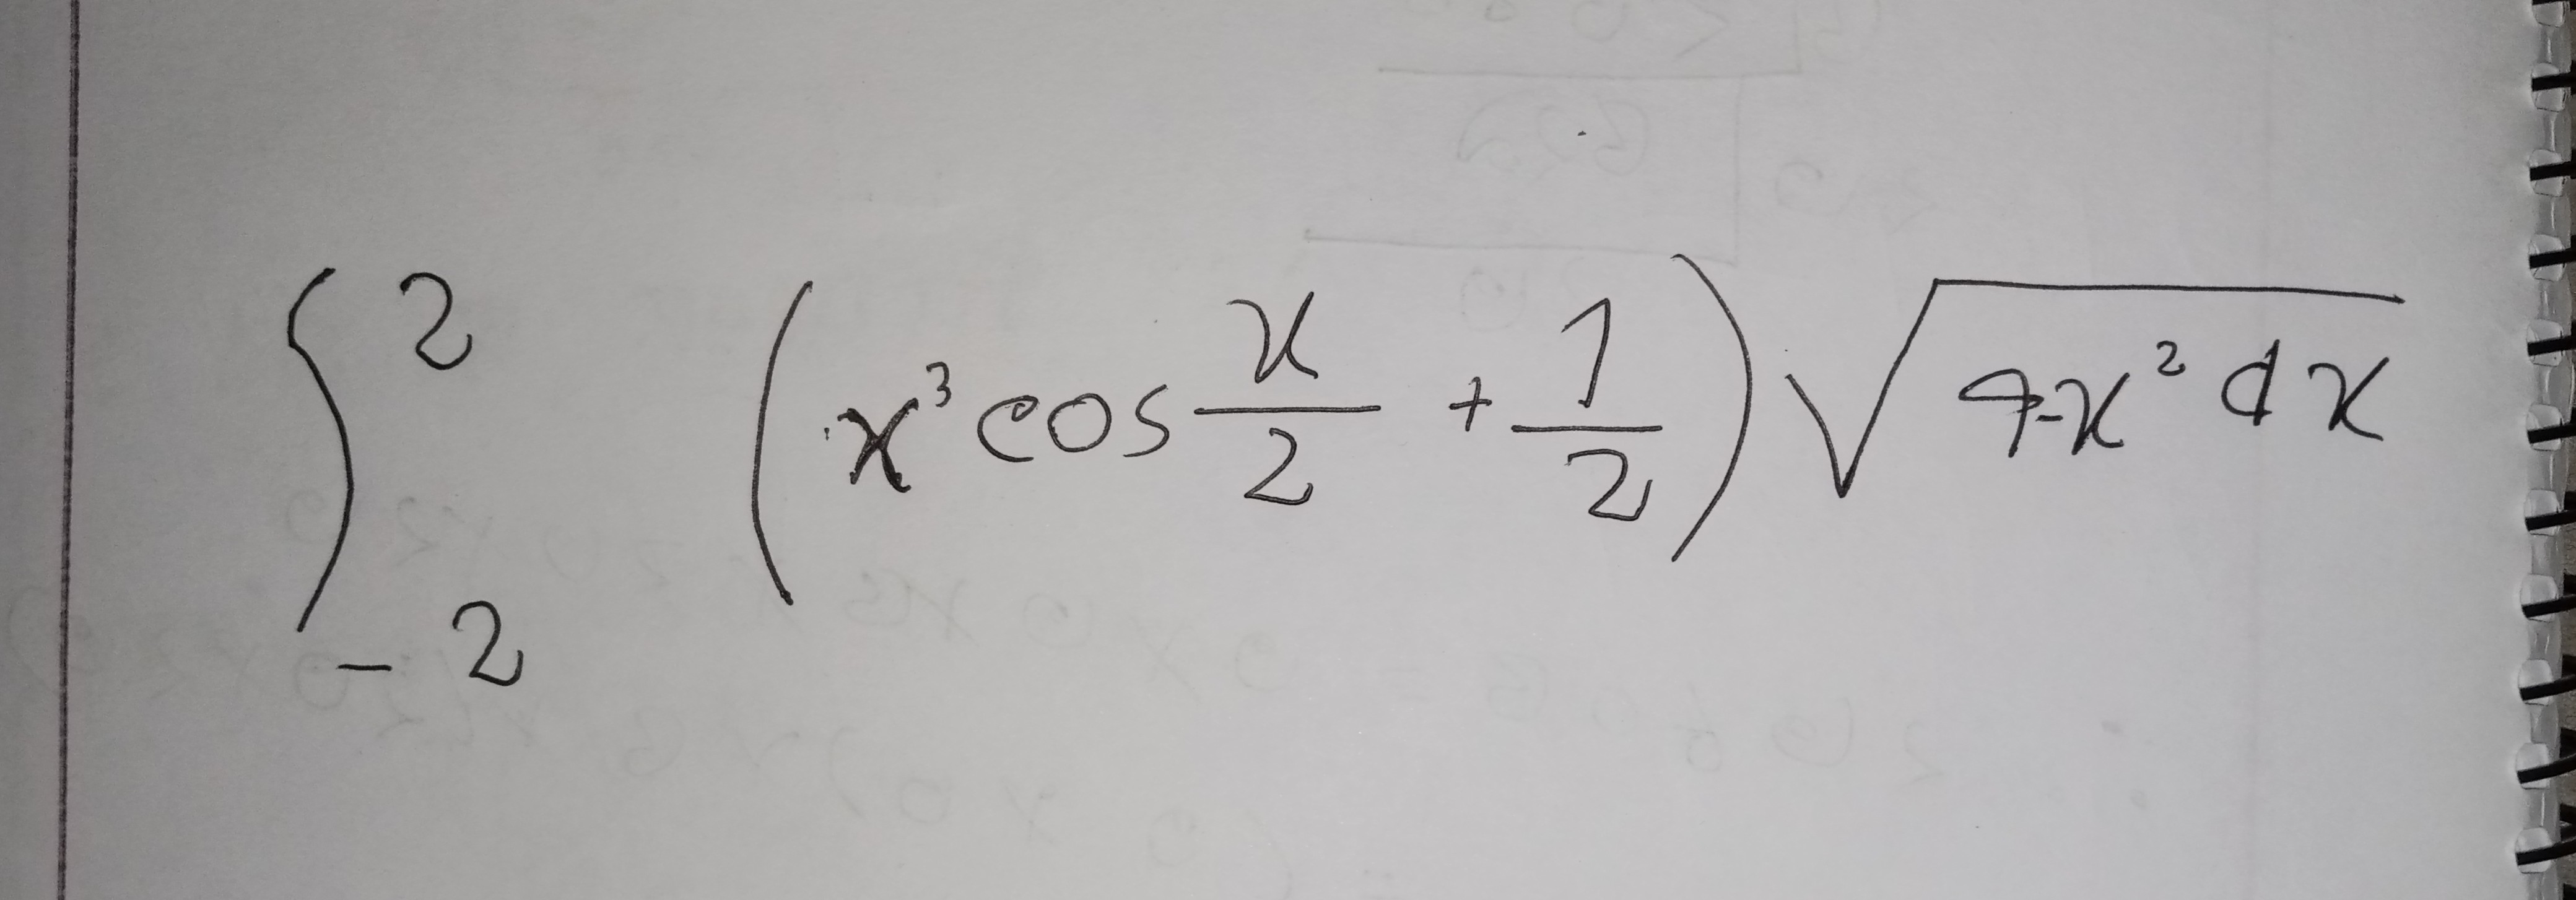 ∫_{-2}^{2} (x³ cos x/2 + 1/2) √(4-x² dx)